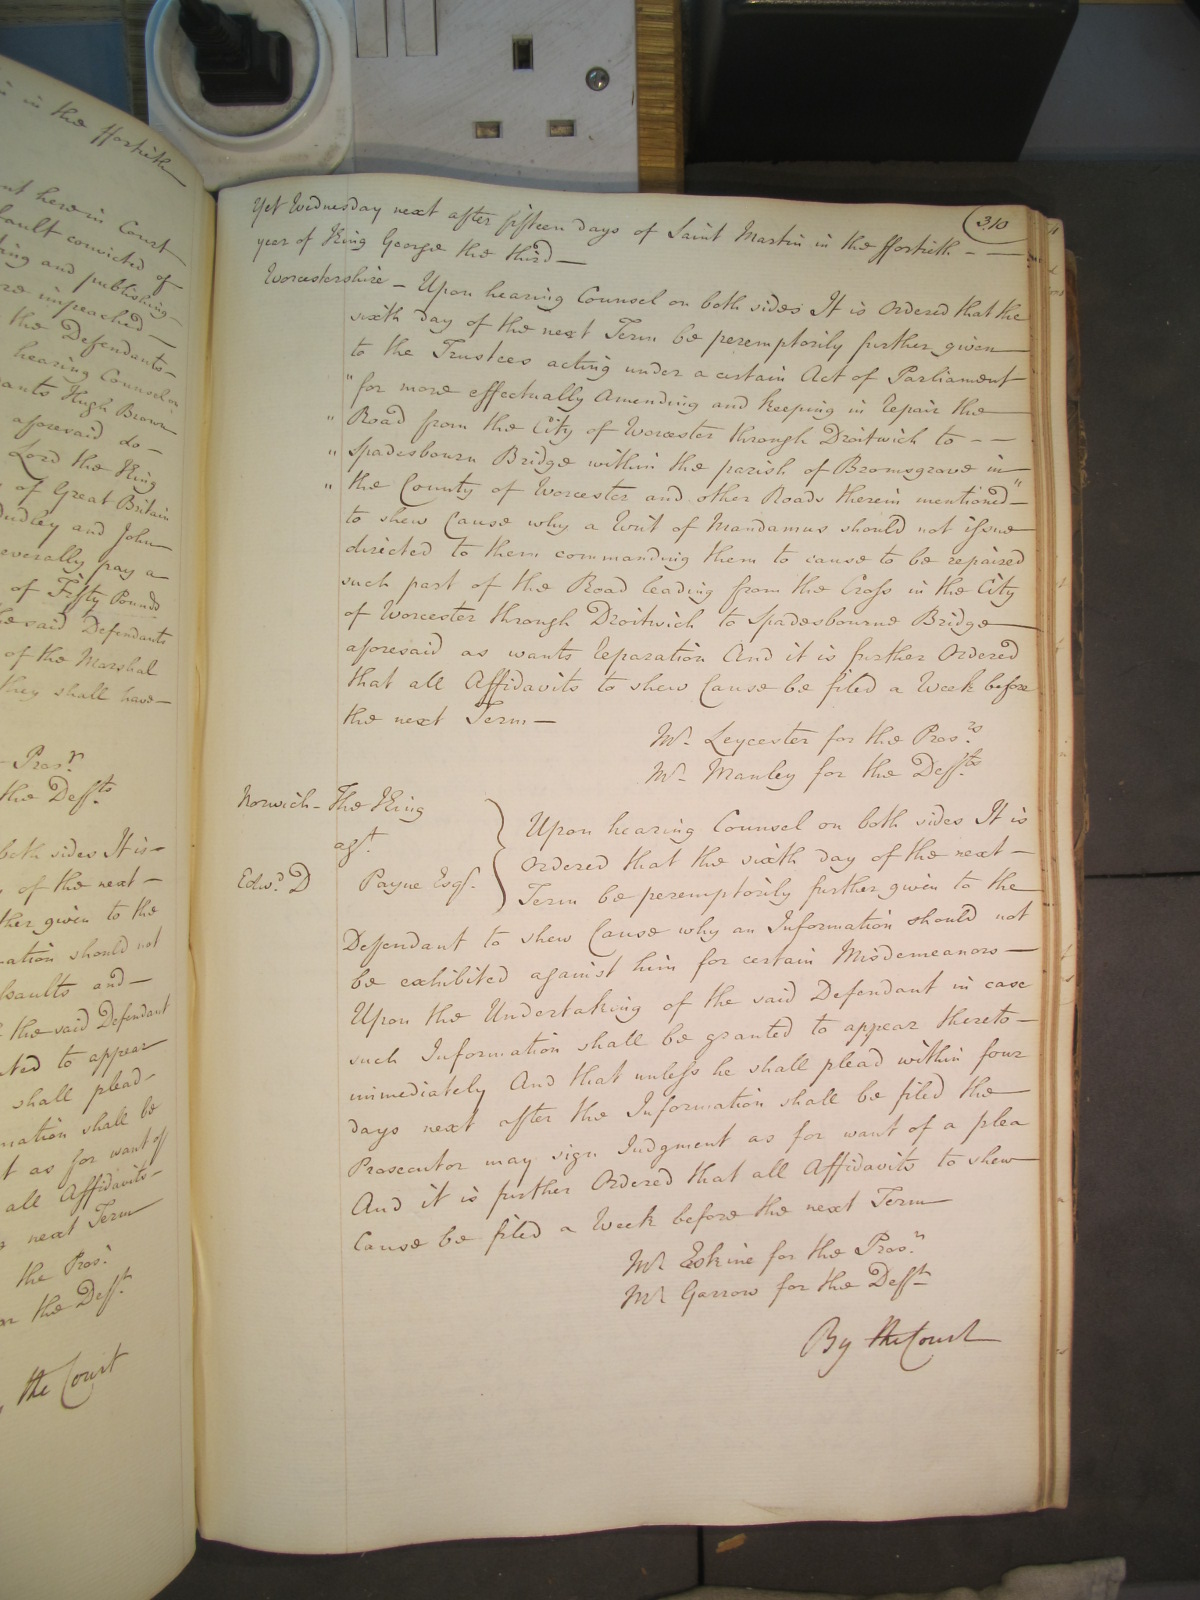 in the ffortieth
nt here in Court
fault convicted of
ing and publishing
re impeached
the Defendants
hearing Counsel on
ants Hugh Brown
aforesaid do
Lord the King
of Great Britain
Dudley and John
everally pay a
of Fifty Pounds
he said Defendants
of the Marshal
they shall have
Pros.r
the Deffts.
both sides It is
of the next
ther given to the
ation should not
ssaults and
the said Defendant
ted to appear
shall plead
mation shall be
t as for want of
all Affidavits
next Term
the Pros.r
the Defft.
the Court
310
Yet Wednesday next after fifteen days of Saint Martin in the ffortieth
year of King George the third
Worcestershire - Upon hearing Counsel on both sides It is Ordered that the
sixth day of the next Term be peremptorily further given
to the Trustees acting under a certain Act of Parliament
"for more effectually Amending and keeping in repair the
" Road from the City of Worcester through Droitwich to - -
" Spadesbourn Bridge within the parish of Bromsgrove in
" the County of Worcester and other Roads therein mentioned"
to shew Cause why a Writ of Mandamus should not issue
directed to them commanding them to cause to be repaired
such part of the Road leading from the Cross in the City
of Worcester through Droitwich to Spadesbourne Bridge
aforesaid as wants Reparation And it is further Ordered
that all Affidavits to shew Cause be filed a Week before
the next Term
Mr. Leycester for the Pros.rs
Mr. Manley for the Deffts.
Norwich - The King
agt.
Edwd. D Payne Esqr.
Upon hearing Counsel on both sides It is
Ordered that the sixth day of the next
Term be peremptorily further given to the
Deffendant to shew Cause why an Information should not
be exhibited against him for certain Misdemeanors
Upon the Undertaking of the said Defendant in case
such Information shall be granted to appear thereto
immediately And that unless he shall plead within four
days next after the Information shall be filed the
Prosecutor may sign Judgment as for want of a plea
And it is further Ordered that all Affidavits to shew
Cause be filed a Week before the next Term
Mr Erskine for the Pros.r
Mr Garrow for the Defft
By the Court